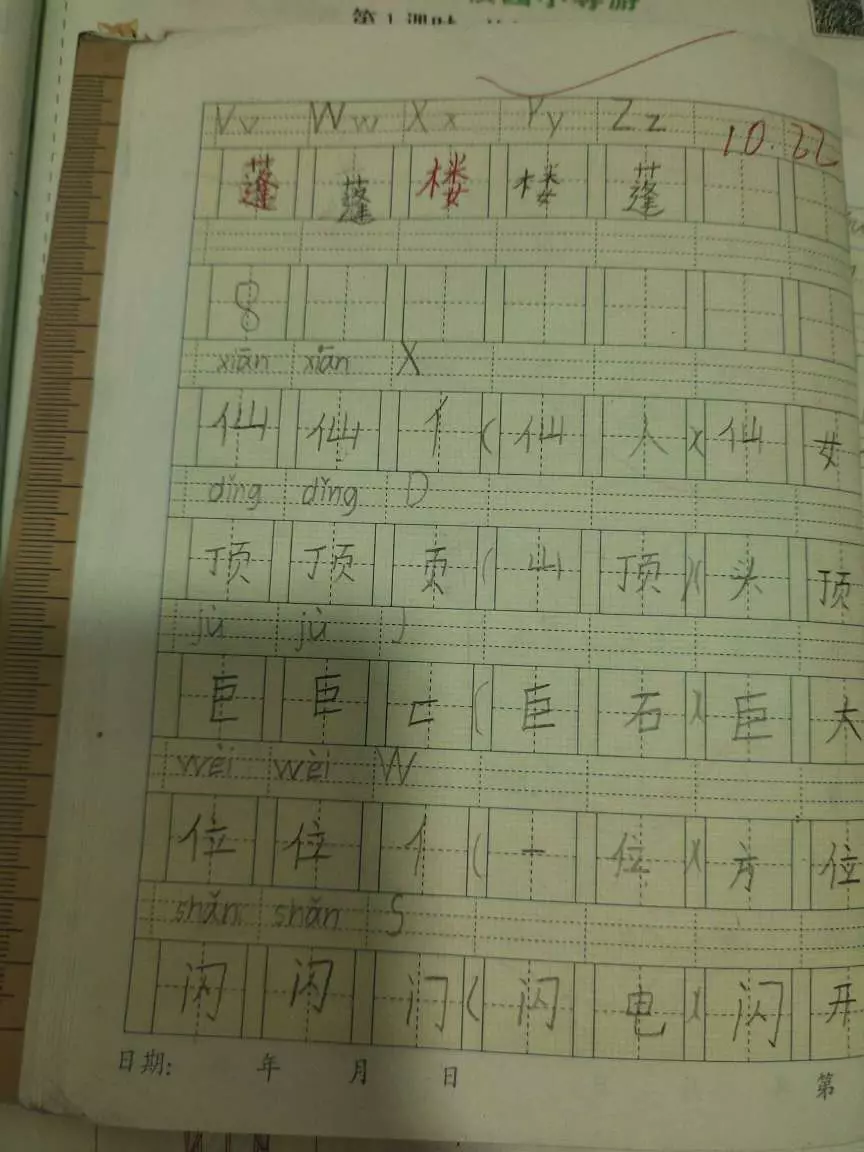 第1课时
Vv Ww Xx Yy Zz 10.22
蓬 蓬 楼 楼 蓬
8
xiān xiān X
仙 仙 亻 ( 仙 人 )( 仙 女
dǐng dǐng D
顶 顶 页 ( 山 顶 )( 头 顶
jù jù J
巨 巨 匚 ( 巨 石 )( 巨 大
wèi wèi W
位 位 亻 ( 一 位 )( 方 位
shǎn shǎn S
闪 闪 门 ( 闪 电 )( 闪 开
日期: 年 月 日 第